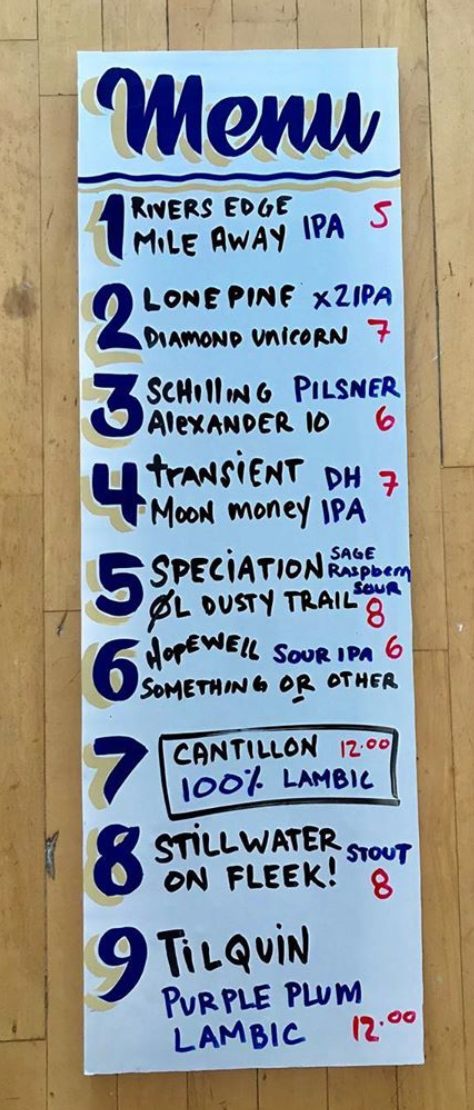 Menu
1 RIVERS EDGE IPA 5
MILE AWAY
2 LONE PINE x2IPA
DIAMOND UNICORN 7
3 SCHILLING PILSNER
ALEXANDER 10 6
4 TRANSIENT DH 7
MOON MONEY IPA
5 SPECIATION SAGE
Raspberry
SOUR
ØL DUSTY TRAIL 8
6 HOPEWELL SOUR IPA 6
SOMETHING OR OTHER
7 CANTILLON 12.00
100% LAMBIC
8 STILLWATER STOUT
ON FLEEK! 8
9 TILQUIN
PURPLE PLUM
LAMBIC 12.00